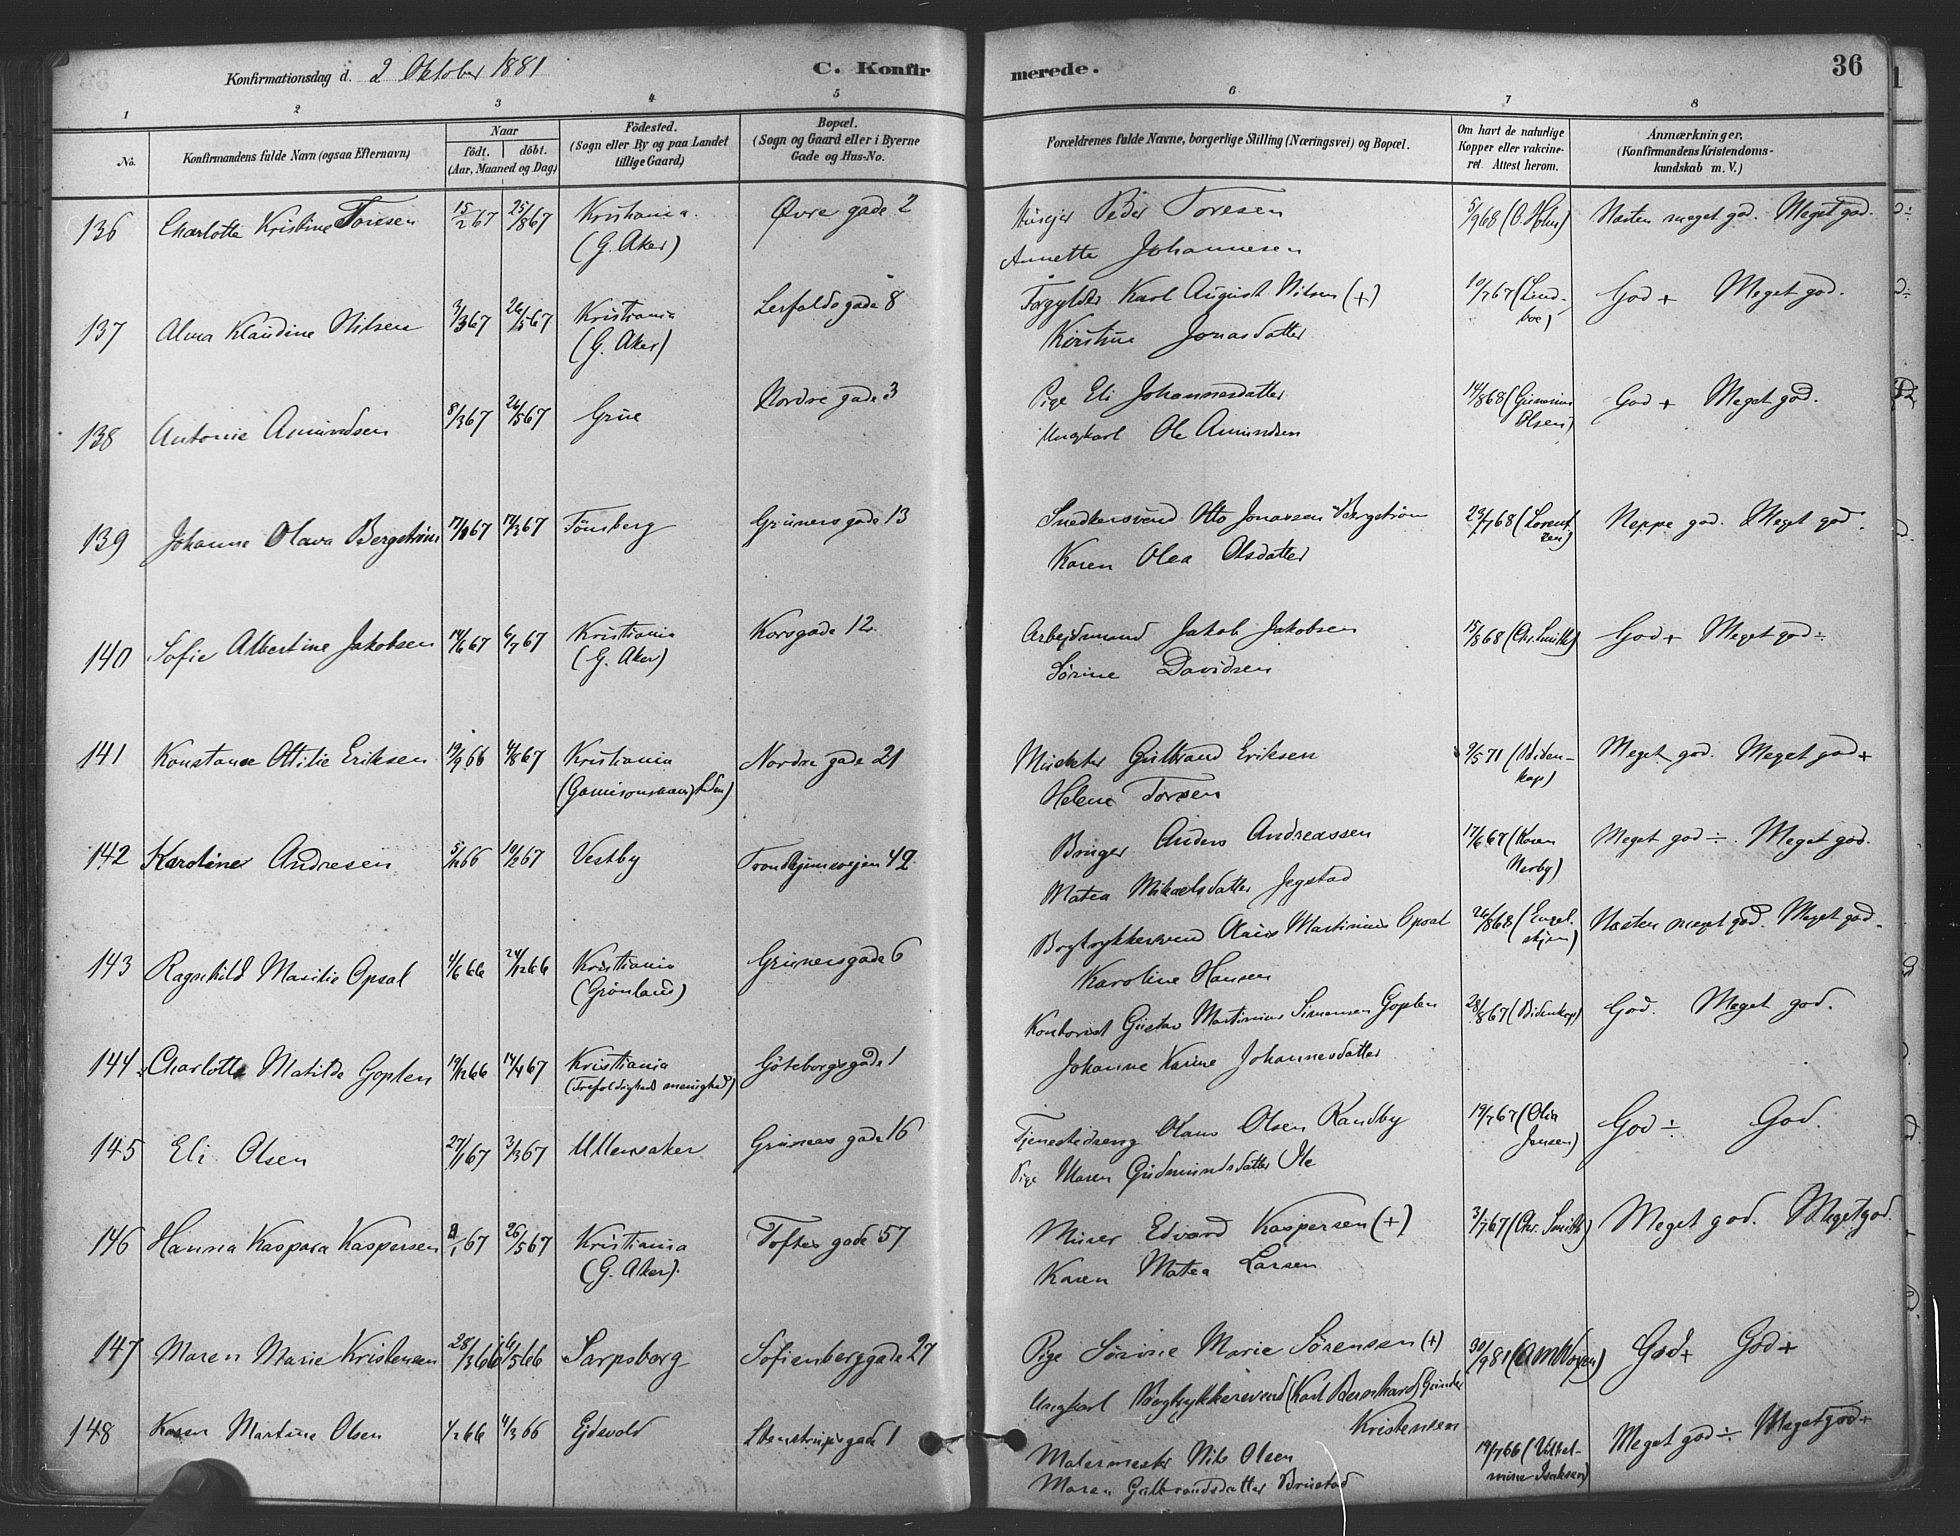 Konfirmationsdag d. 2 Oktober 1881
C. Konfirmerede.
36
1 2 3 4 5 6 7 8
No.
Konfirmandens fulde Navn (ogsaa Efternavn)
Naar
födt. döbt.
(Aar, Maaned og Dag)
Födested.
(Sogn eller By og paa Landet
tillige Gaard)
Bopæl.
(Sogn og Gaard eller i Byerne
Gade og Hus-No.
Forældrenes fulde Navne, borgerlige Stilling (Næringsvei) og Bopæl.
Om havt de naturlige
Kopper eller vakcine-
ret. Attest herom.
Anmærkninger.
(Konfirmandens Kristendoms-
kundskab m. V.)
136 Charlotte Kristine Toresen 15/2 67 25/8 67 Kristiania. Øvre gade 2 Peder Toresen 5/9 68 (C. Holm) Næsten meget god. Meget god.
(G. Aker) Annette Johannesen
137 Alma Klaudine Nilsen 3/3 67 26/5 67 Kristiania gade 8 Forgylder Karl August Nilsen (+) 10/7 67 (Lind-
boe) God + Meget god.
(G. Aker) Kirstine Jonasdatter
138 Antonie Amundsen 8/3 67 26/5 67 Grue Nordre gade 3 Pige Eli Johannesdatter 14/8 68 (Gunerius
Olsen) God + Meget god.
Ungkarl Ole Amundsen
139 Johanne Olava Bergström 17/3 67 Tönsberg Grüners gade 13 Snedkersvend Otto Jonassen Bergström 23/7 68 (Lorent-
zen) Neppe god. Meget god.
Karen Olea Olsdatter
140 Sofie Albertine Jakobsen 14/6 67 6/7 67 Kristiania Korsgade 12. Arbeidsmand Jakob Jakobsen 15/8 68 (Chr. Smith) God + Meget god ÷
(G. Aker) Sörine Davidsen
141 Konstanse Ottilie Eriksen 19/9 66 4/8 67 Kristiania Nordre gade 21 Gulbrand Eriksen 9/5 71 (Biden-
kap) Meget god. Meget god +
Helene
142 Karoline Andresen 66 67 Vestby Trondhjemsveien 42 Anders Andreassen 17/6 67 (Karen
Nerby) Meget god ÷. Meget god.
Matea Mikaelsdatter Jegstad
143 Ragnhild Marilie Opsal 4/6 66 24/12 66 Kristiania Grünersgade 6 Bogtrykkersvend Martinius Opsal 26/8 68 (Engel-
skjøn) Næsten meget god. Meget god.
(Grönland) Karoline Hansen
144 Charlotte Matilde Goplen 19/12 66 14/4 67 Kristiania Göteborgsgade 1 Kontorist Gustav Martinius Simensen Goplen 28/8 67 (Bidenkap) God. Meget god.
(Trefoldigheds menighed) Johanne Karine Johannesdatter
145 Eli Olsen 27/1 67 3/3 67 Ullensaker Grüners gade 16 Tjenestedreng Olaus Olsen Randby 19/7 67 (Olia
Jensen) God ÷ God.
Pige Maren Gudmundsdatter Ile
146 Hanna Kaspara Kaspersen 67 26/5 67 Kristiania Toftes gade 57 Murer Edvard Kaspersen (+) 3/7 67 (Chr. Smith) Meget god. Meget god.
(G. Aker). Karen Matea Larsen
147 Maren Marie Kristensen 28/3 66 6/5 66 Sarpsborg Sofienberggade 27 Pige Sörine Marie Sörensen (+) 30/9 81 God + God +
Ungkarl Bogtrykkersvend Karl Bernhard
Kristensen
148 Karen Martine Olsen 1/2 66 4/3 66 Eidsvold Stenstrupsgade 1 Malermester Nils Olsen 19/7 66 (Vilhel-
mine Isaksen) Meget god ÷. Meget god +
Maren Gulbrandsdatter